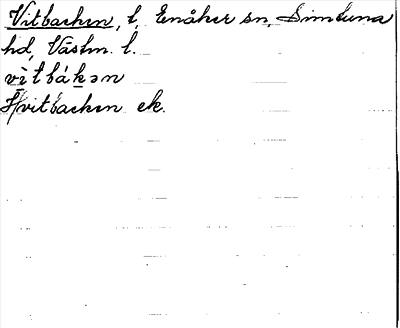 Vitbacken, l, Enåker sn, Simtuna
hd, Västm. l.
vìtbákən
Hvitbacken ek.